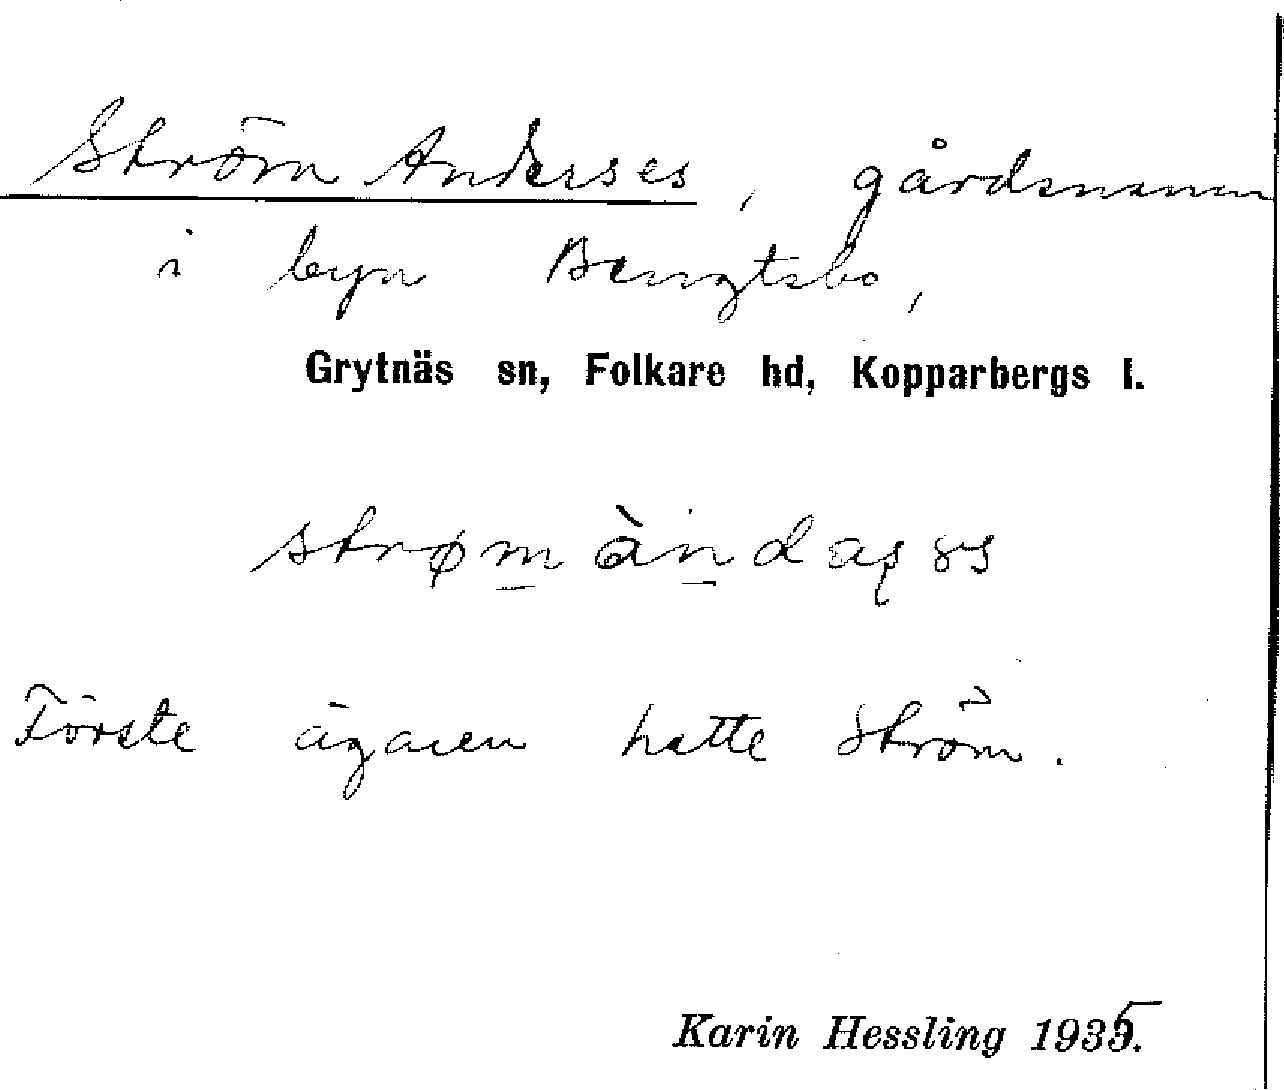 Ström Anderses, gårdsnamn
i byn Bengtsbo,
Grytnäs sn, Folkare hd, Kopparbergs l.
strømàndaʂəs
Förste ägaren hette Ström.
Karin Hessling 1935.